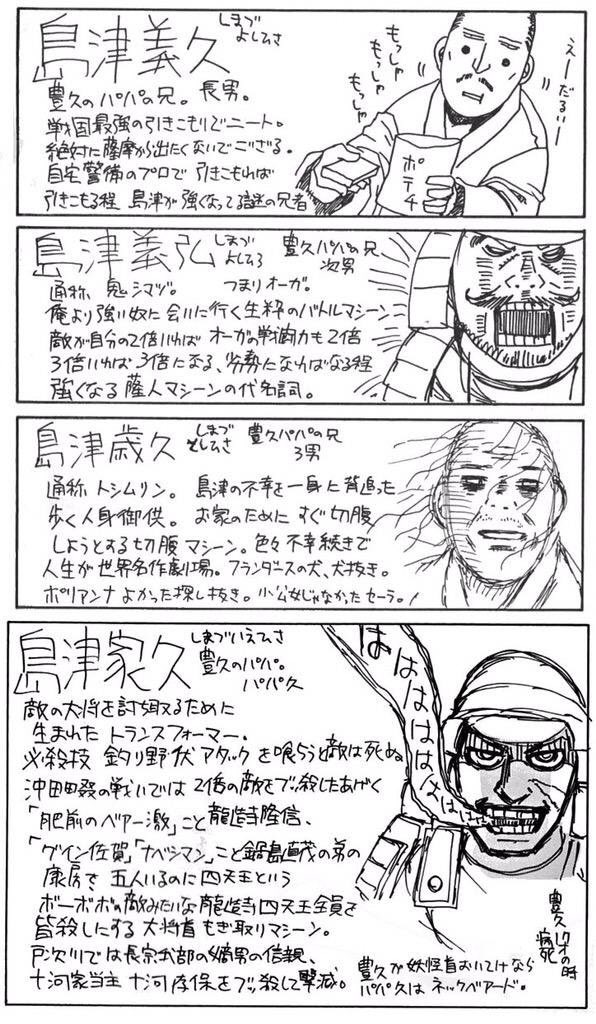 島津義久
しまづ
よしひさ
豊久のパパの兄。長男。
戦国最強の引きこもりでニート。
絶対に薩摩から出たくないでござる。
自宅警備のプロで引きこもれば
引きこもる程 島津が強くなって謎の兄者
もっしゃ
もっしゃ
もっしゃ
えーだるいー
ポテチ
島津義弘
しまづ
よしひろ
豊久パパの兄
次男
通称 鬼シマヅ。 つまりオーガ。
俺より強い奴に会いに行く生粋のバトルマシーン
敵が自分の2倍いればオーガの戦闘力も2倍
3倍いれば3倍になる、劣勢になればなる程
強くなる薩人マシーンの代名詞。
島津歳久
しまづ
としひさ
豊久パパの兄
3男
通称 トシムリン。 島津の不幸を一身に背追った
歩く人身御供。 お家のためにすぐ切腹
しようとする切腹マシーン。色々不幸続きで
人生が世界名作劇場。フランダースの犬、犬抜き。
ポリアンナよかった探し抜き。小公女じゃなかったセーラ。!
島津家久
しまづいえひさ
豊久のパパ。
パパ久
敵の大将を討ち取るために
生まれたトランスフォーマー。
必殺技 釣り野伏アタックを喰らうと敵は死ぬ
沖田畷の戦いでは2倍の敵をブッ殺したあげく
「肥前のベアー激」こと龍造寺隆信、
「グイン佐賀」「ナベシマン」こと鍋島直茂の弟の
康房で 五人いるのに四天王という
ボーボボの敵みたいな龍造寺四天王全員を
皆殺しにする 大将首もぎ取りマシーン。
戸次川では長宗我部の嫡男の信親、
十河家当主 十河存保をブッ殺して撃滅。
ははははははははは
豊久17才の時
病死
豊久が妖怪首おいてけなら
パパ久はネックベアード。